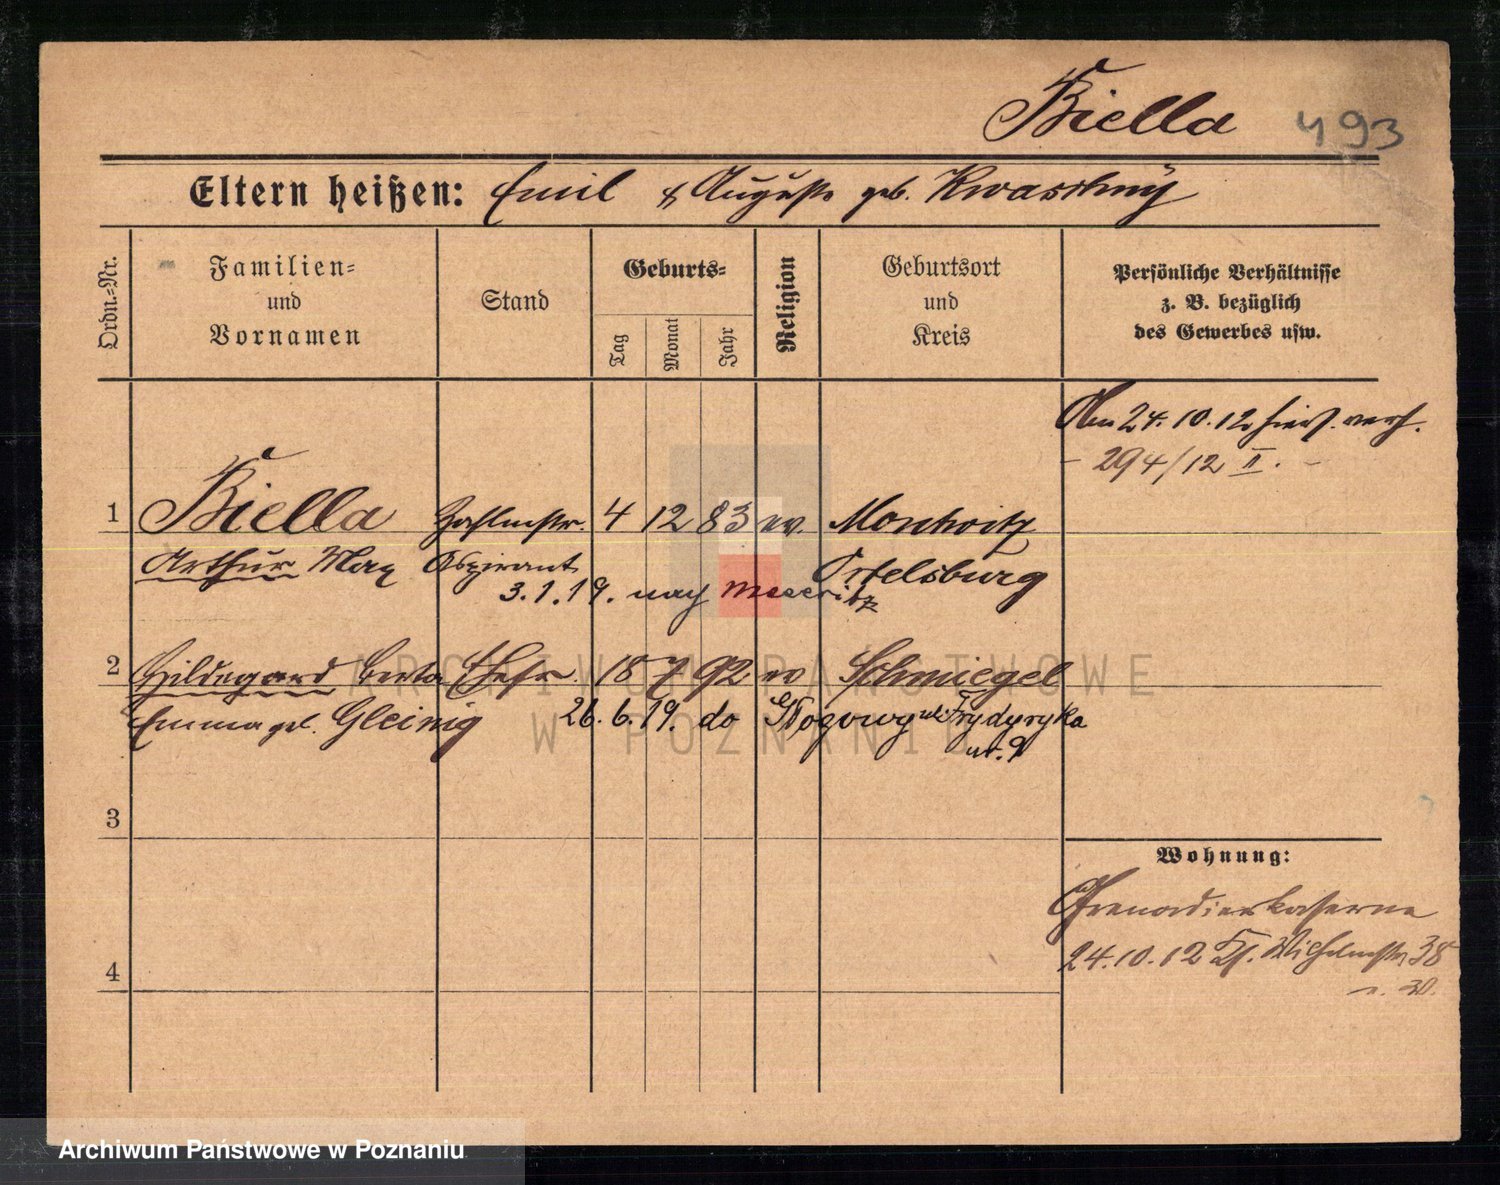 Biella 493
Eltern heißen: Emil & Auguste geb. Kwastny
Ordn.-Nr.
Familien-
und
Vornamen
Stand
Geburts-
Tag
Monat
Jahr
Religion
Geburtsort
und
Kreis
Persönliche Verhältnisse
z. B. bezüglich
des Gewerbes usw.
Am 24.10.12 hies. verh.
- 294/12 II. -
1 Biella Zahlmstr. 4 12 83 ev.
Arthur Max Aspirant Ortelsburg
3.1.19. nach Meseritz
2 Hildegard Berta Ehefr. 18 7 92 ev Schmiegel
Emma geb. Gleinig 26.6.19. do Głogowy ul. Frydryka
nr. 9
3
Wohnung:
Grenadierkaserne
24.10.12 Kl. Wilhelmstr 38
4
ARCHIWUM PAŃSTWOWE
W POZNANIU
Archiwum Państwowe w Poznaniu